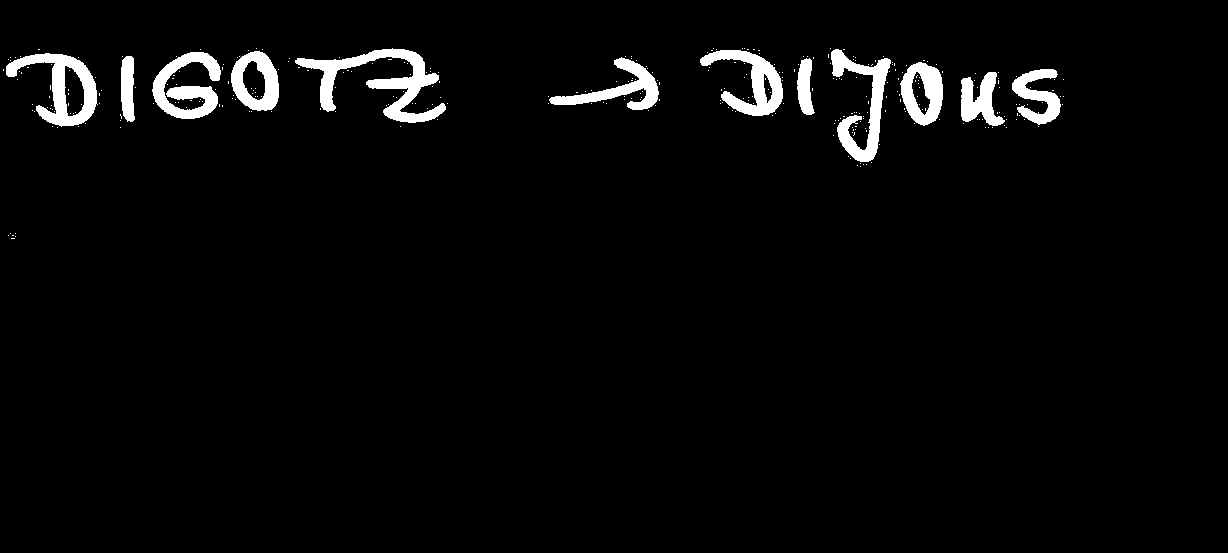 DIGOTZ → DIJOUS